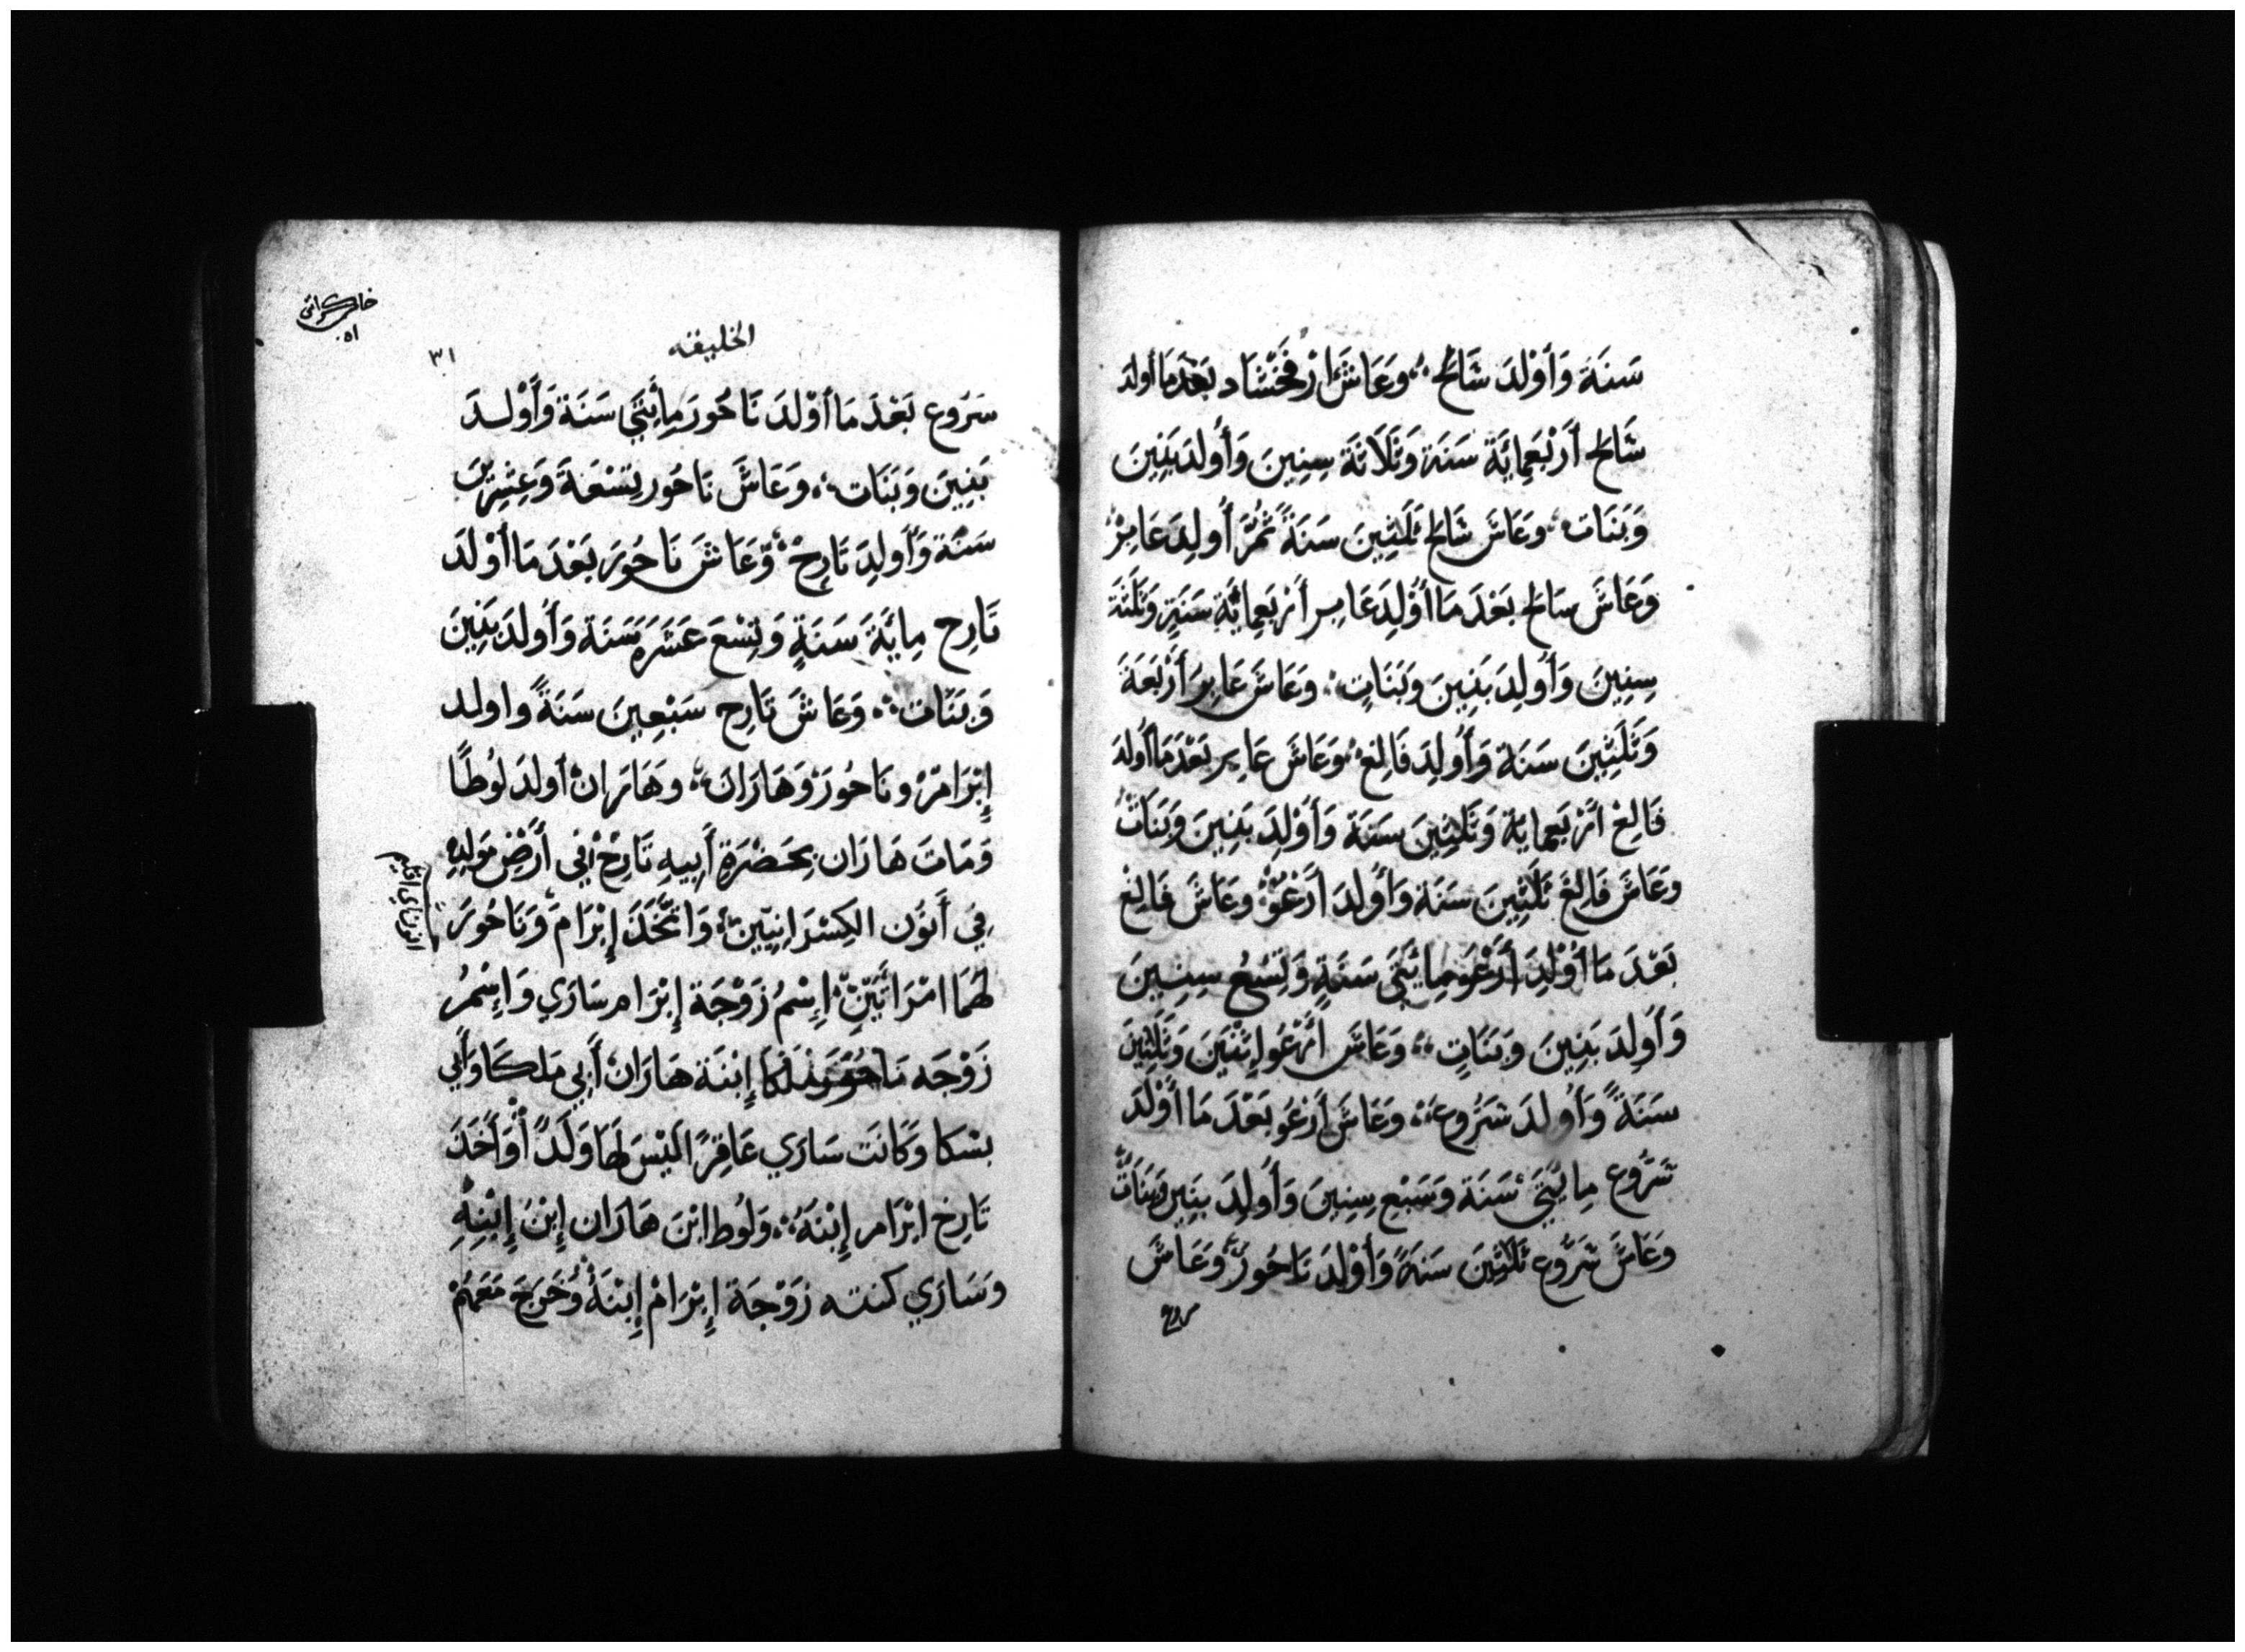 سَنَة وَأَوْلَدَ شَالَخ ؞ وَعَاشَ ارْفَخْشَاد بَعْدَمَا أولدَ
شَالَخ أَرْبَعِمِائَةِ سَنَة وَثَلَاثَة سِنِينَ وَأَولَدَ بَنِينَ
وَبَنَات ؞ وَعَاشَ شَالَخ ثَلَثِينَ سَنَةً ثُمَّ أُولِدَ عَابِرْ
وَعَاشَ سَالَخ بَعْدَ مَا أَوْلِدَ عَابِر أَرْبَعِمِائَةِ سَنَةٍ وَثَلَثَة
سِنِينَ وَأَولِدَ بَنِينَ وَبَنَاتٍ ؞ وَعَاشَ عَابِرَ أَرْبَعَةَ
وَثَلَثِينَ سَنَة وَأَولِدَ فَالِغ ؞ وَعَاشَ عَابِر بَعْدَ مَا أَولدَ
فَالِغ أَرْبَعمايَة وَثَلثِينَ سَنَة وَأَوْلِدَ بَنِينَ وَبَنَاتْ
وَعَاشَ فَالِغَ ثَلَثِينَ سَنَة وَأَولدَ أَرَغُوّ ؞ وَعَاشَ فَالِغ
بَعْدَ مَا أَوْلِدَ أَرَغُو مِايَتَيَ سَنَةٍ وَتِسْعُ سِنِينَ
وَأَولِدَ بَنِينَ وَبَنَاتٍ ؞ وَعَاشَ أَرْغُو إِثْنَيْنَ وَثَلَثِينَ
سَنَةً وَأَولدَ سَرُوع ؞ وَعَاشَ أَرَغُو بَعْدَ مَا أَوْلَدَ
سَرُوع مِايَتَيَ سَنَة وَسَبْعِ سِنِينَ وَأَولِدَ بنِين وَبَنَاتْ
وَعَاشَ سَرُوع ثَلَثِينَ سَنَةً وَأَوْلِدَ نَاحُورَ وَعَاشَ
الخليقه
٣١
٥١
سَرُوع بَعْدَ مَا أوْلدَ نَاحُورَ مِايَتَيَ سَنَة وَأَوْلـدَ
بَنِينَ وَبَنَات ؞ وَعَاشَ نَاحُور تِسْعَةَ وَعِشْرِينَ
سَنَة وَأَولِدَ تَارِحْ ؞ وَعَاشَ نَاحُورَ بَعْدَ مَا أَوْلدَ
تَارِح مِايَةَ سَنَةٍ وَتِسْعَ عَشَرَةَ سَنَة وَأَولدَ بَنِينَ
وَبَنَات ؞ وَعَاشَ تَارِح سَبْعِينَ سَنَةً واولد
إِبْرَامَرْ وَنَاحُورَ وَهَارَان ؞ وَهَارَانْ أولدَ لُوطًا
وَمَاتَ هَارَان بِحَضْرَةِ أَبِيهِ تَارِحْ فِي أَرْضِ مَولِدِهِ
فِي أَتوُن الكِسْرَانِيّينْ ؞ وَاتَّخَذَ إِبْرَام وَنَاحُورَ
لهَمَا امْرَاتَيْنِ ؞ إِسْمُ زَوْجَة إِبْرَام سَارَي وَاِسْمُ
زَوْجَه نَاحُورَ مَلكَا إِبْنَة هَارَانْ أَبِي مَلكَا وَأَبي
يسْكا وَكَانَت سَارَي عَاقِرًا لَيْسَ لهَا وَلَدًا ؞ وَأَخَذَ
تَارِخ ابْرَام إِبْنَهُ ؞ وَلُوط ابْنَ هَارَان إِبْنُ إِبْنِهِ
وَسَارَي كنته زَوْجَة إِبْرَامْ إِبْنَهُ وَخَرجَ مَعَهُمْ